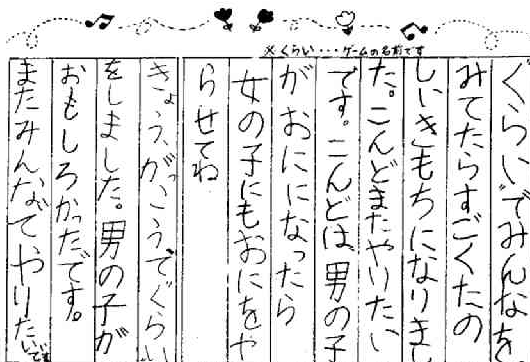 ※くらい・・・ゲームの名前です
ぐらいでみんなを
みてたらすごくたの
しいきもちになりまし
た。こんどまたやりたい
です。こんどは、男の子
がおにになったら
女の子にもおにをや
らせてね
きょう、がっこうでぐらい
をしました。男の子が
おもしろかったです。
またみんなでやりたいです